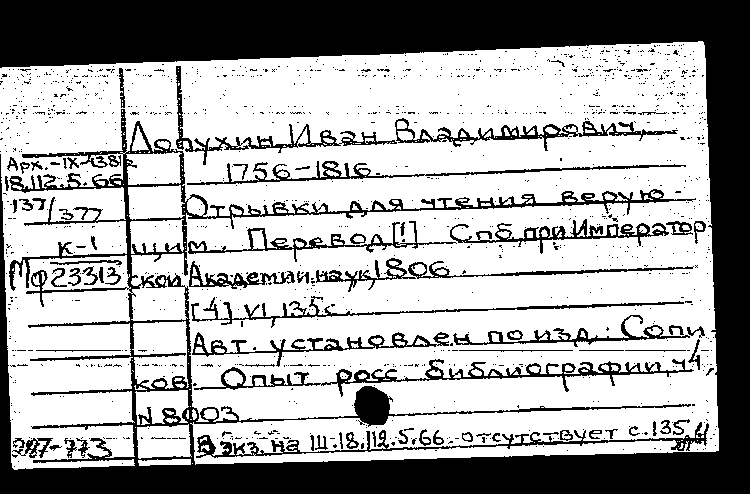 Лопухин, Иван Владимирович,
Арх.-IX-1381г
1756-1816.
18.112.5.66
137/377
Отрывки для чтения верую-
К-1
щим. Перевод[!] Спб, при Император
Мф 23313
ской Академии наук, 1806.
[4], VI, 135 с.
Авт. установлен по изд.: Сопи-
ков. Опыт росс. библиографии, ч4,
N 8003
В экз. на Ш.18.112.5.66 отсутствует с.135